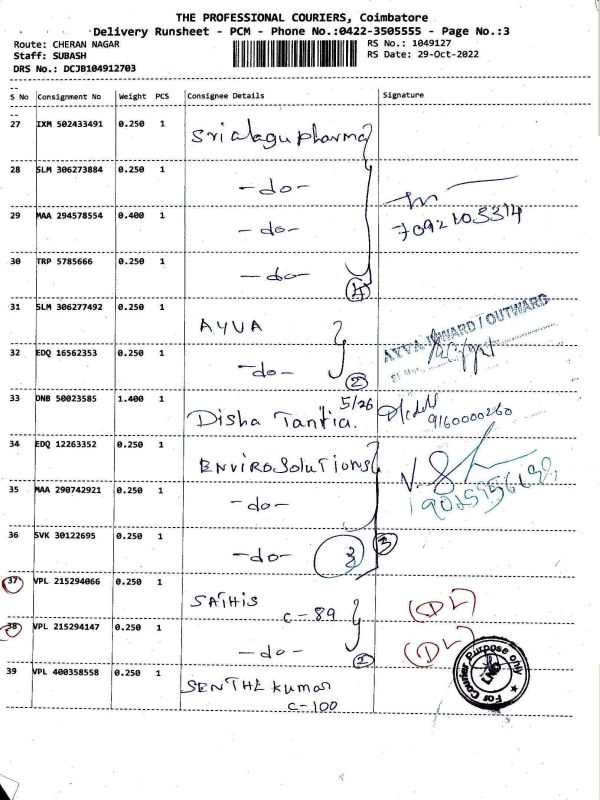 THE PROFESSIONAL COURIERS, Coimbatore
Delivery Runsheet - PCM - Phone No.:0422-3505555 - Page No.:3
Route: CHERAN NAGAR RS No.: 1049127
Staff: SUBASH RS Date: 29-Oct-2022
DRS No.: DCJB104912703
S No Consignment No Weight PCS Consignee Details Signature
27 IXM 502433491 0.250 1 Sri alagu pharma
28 SLM 306273884 0.250 1 -do-
29 MAA 294578554 0.400 1 -do- 7092105314
30 TRP 5785666 0.250 1 -do- 4
31 SLM 306277492 0.250 1 AYVA AYVA INWARD / OUTWARD
32 EDQ 16562353 0.250 1 -do- 2
33 DNB 50023585 1.400 1 Disha Tantia. 5/26 9160000260
34 EDQ 12263352 0.250 1 ENVIROSOLUTIONS
35 MAA 290742921 0.250 1 -do-
36 SVK 30122695 0.250 1 -do- 3 3
37 VPL 215294066 0.250 1 SATHIS C-89 (DL)
38 VPL 215294147 0.250 1 -do- 2 (DL)
39 VPL 400358558 0.250 1 SENTHE kumar
C-100
For Courier Purpose only